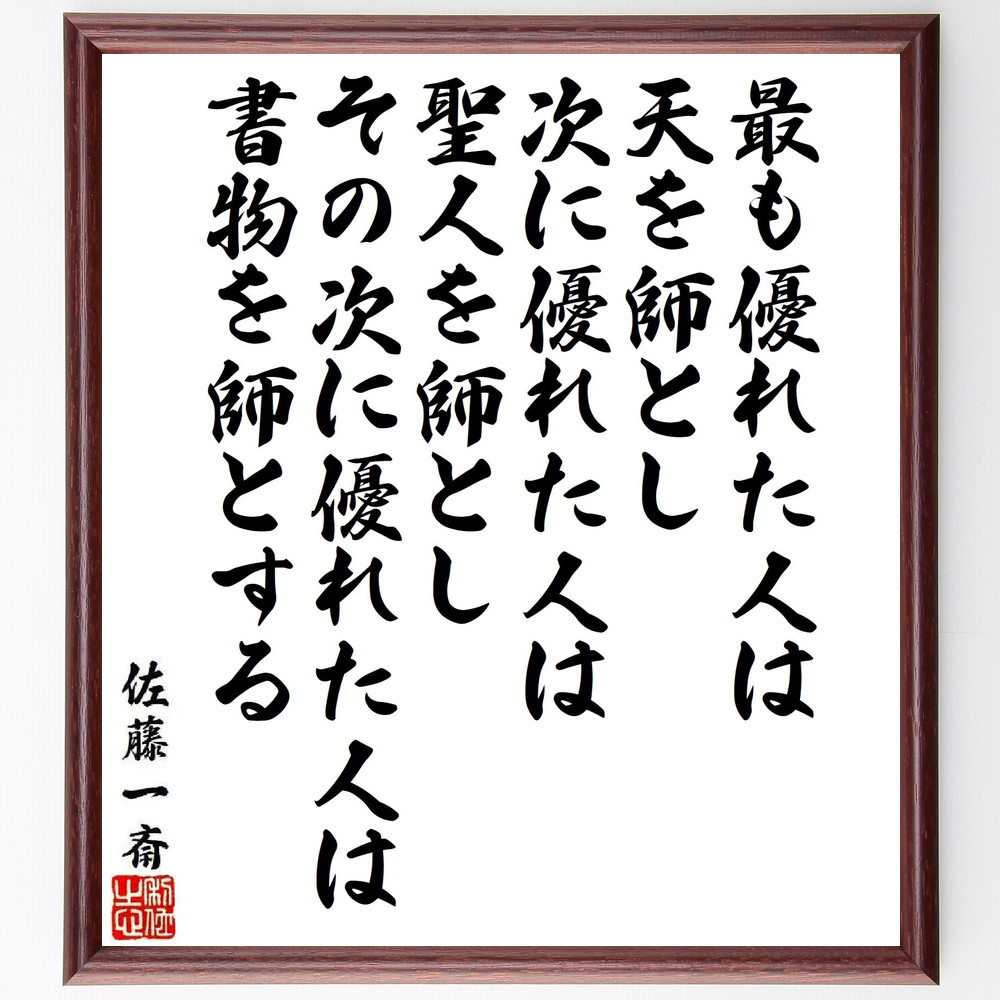 最も優れた人は
天を師とし
次に優れた人は
聖人を師とし
その次に優れた人は
書物を師とする
佐藤一斎